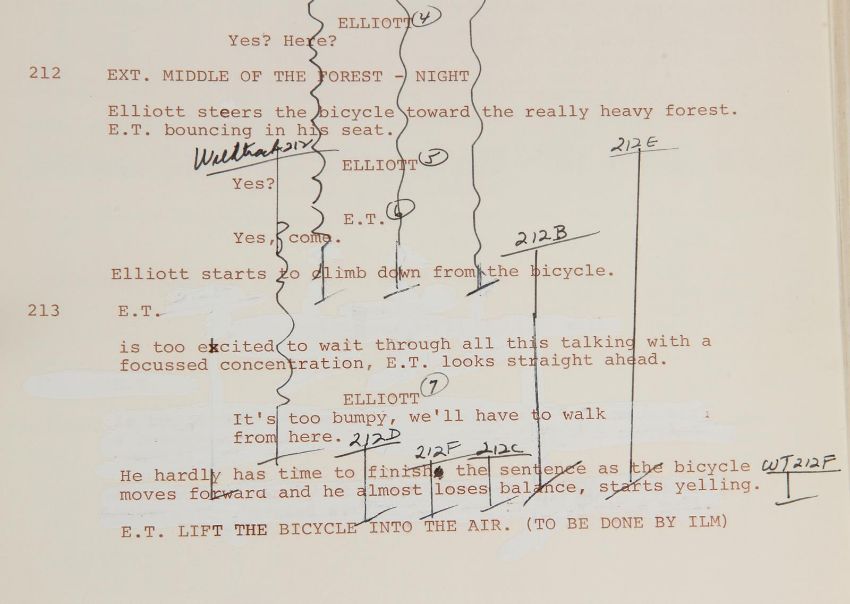 ELLIOTT (4)
Yes? Here?
212 EXT. MIDDLE OF THE FOREST - NIGHT
Elliott steers the bicycle toward the really heavy forest.
E.T. bouncing in his seat.
Wildtrack 212
212E
ELLIOTT (5)
Yes?
E.T. (6)
Yes, come.
212B
Elliott starts to climb down from the bicycle.
213 E.T.
is too excited to wait through all this talking with a
focussed concentration, E.T. looks straight ahead.
ELLIOTT (7)
It's too bumpy, we'll have to walk
from here.
212D 212F 212C
He hardly has time to finish the sentence as the bicycle WT212F
moves forward and he almost loses balance, starts yelling.
E.T. LIFT THE BICYCLE INTO THE AIR. (TO BE DONE BY ILM)